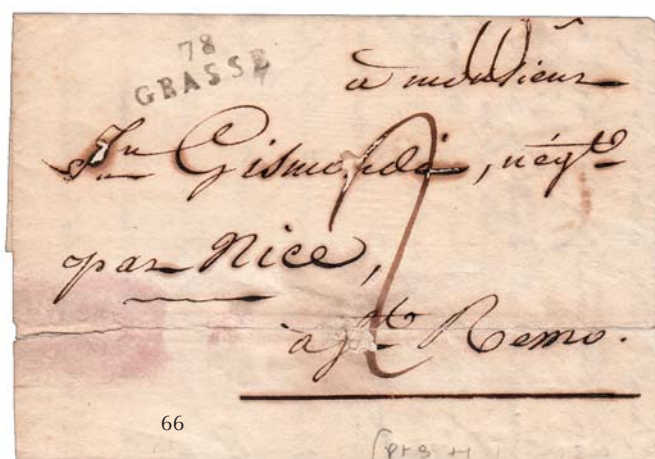 78
GRASSE
à monsieur
Jn Gismondi, négt
par Nice,
à St Remo.
66